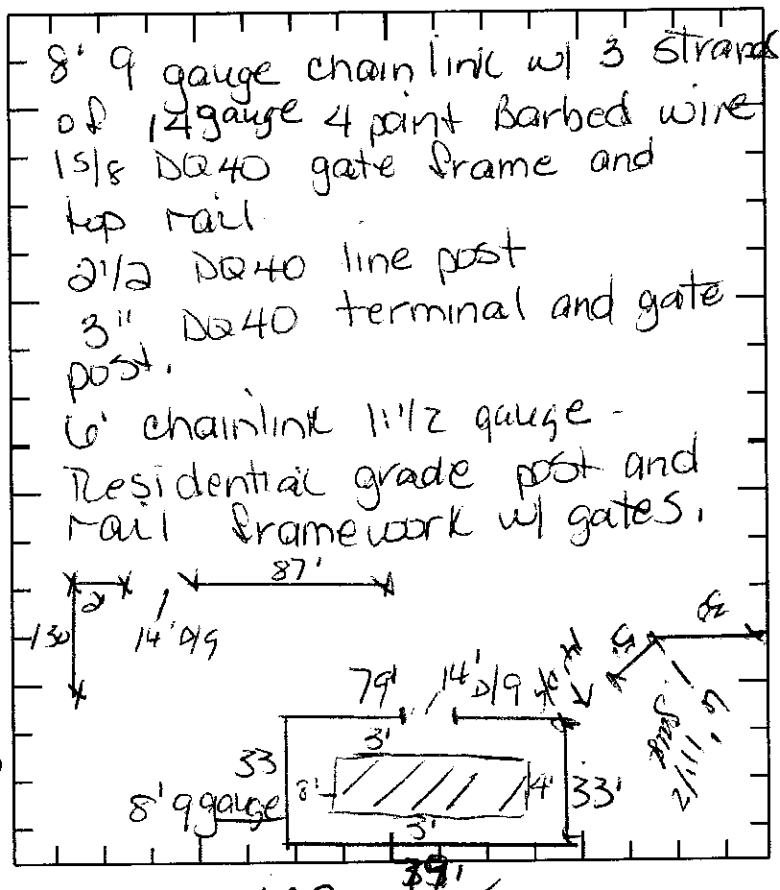 8' 9 gauge chain link w/ 3 Strands
of 14gauge 4 point Barbed wire
1 5/8 DQ40 gate frame and
top rail
2 1/2 DQ40 line post
3" DQ40 terminal and gate
post.
6' chainlink 11 1/2 gauge -
Residential grade post and
rail framework w/ gates.
87'
2'
130
14' D/G
79'
14' D/G
33
3'
8'
4'
33'
3'
8' 9 gauge
39'
6' 11 1/2
gauge